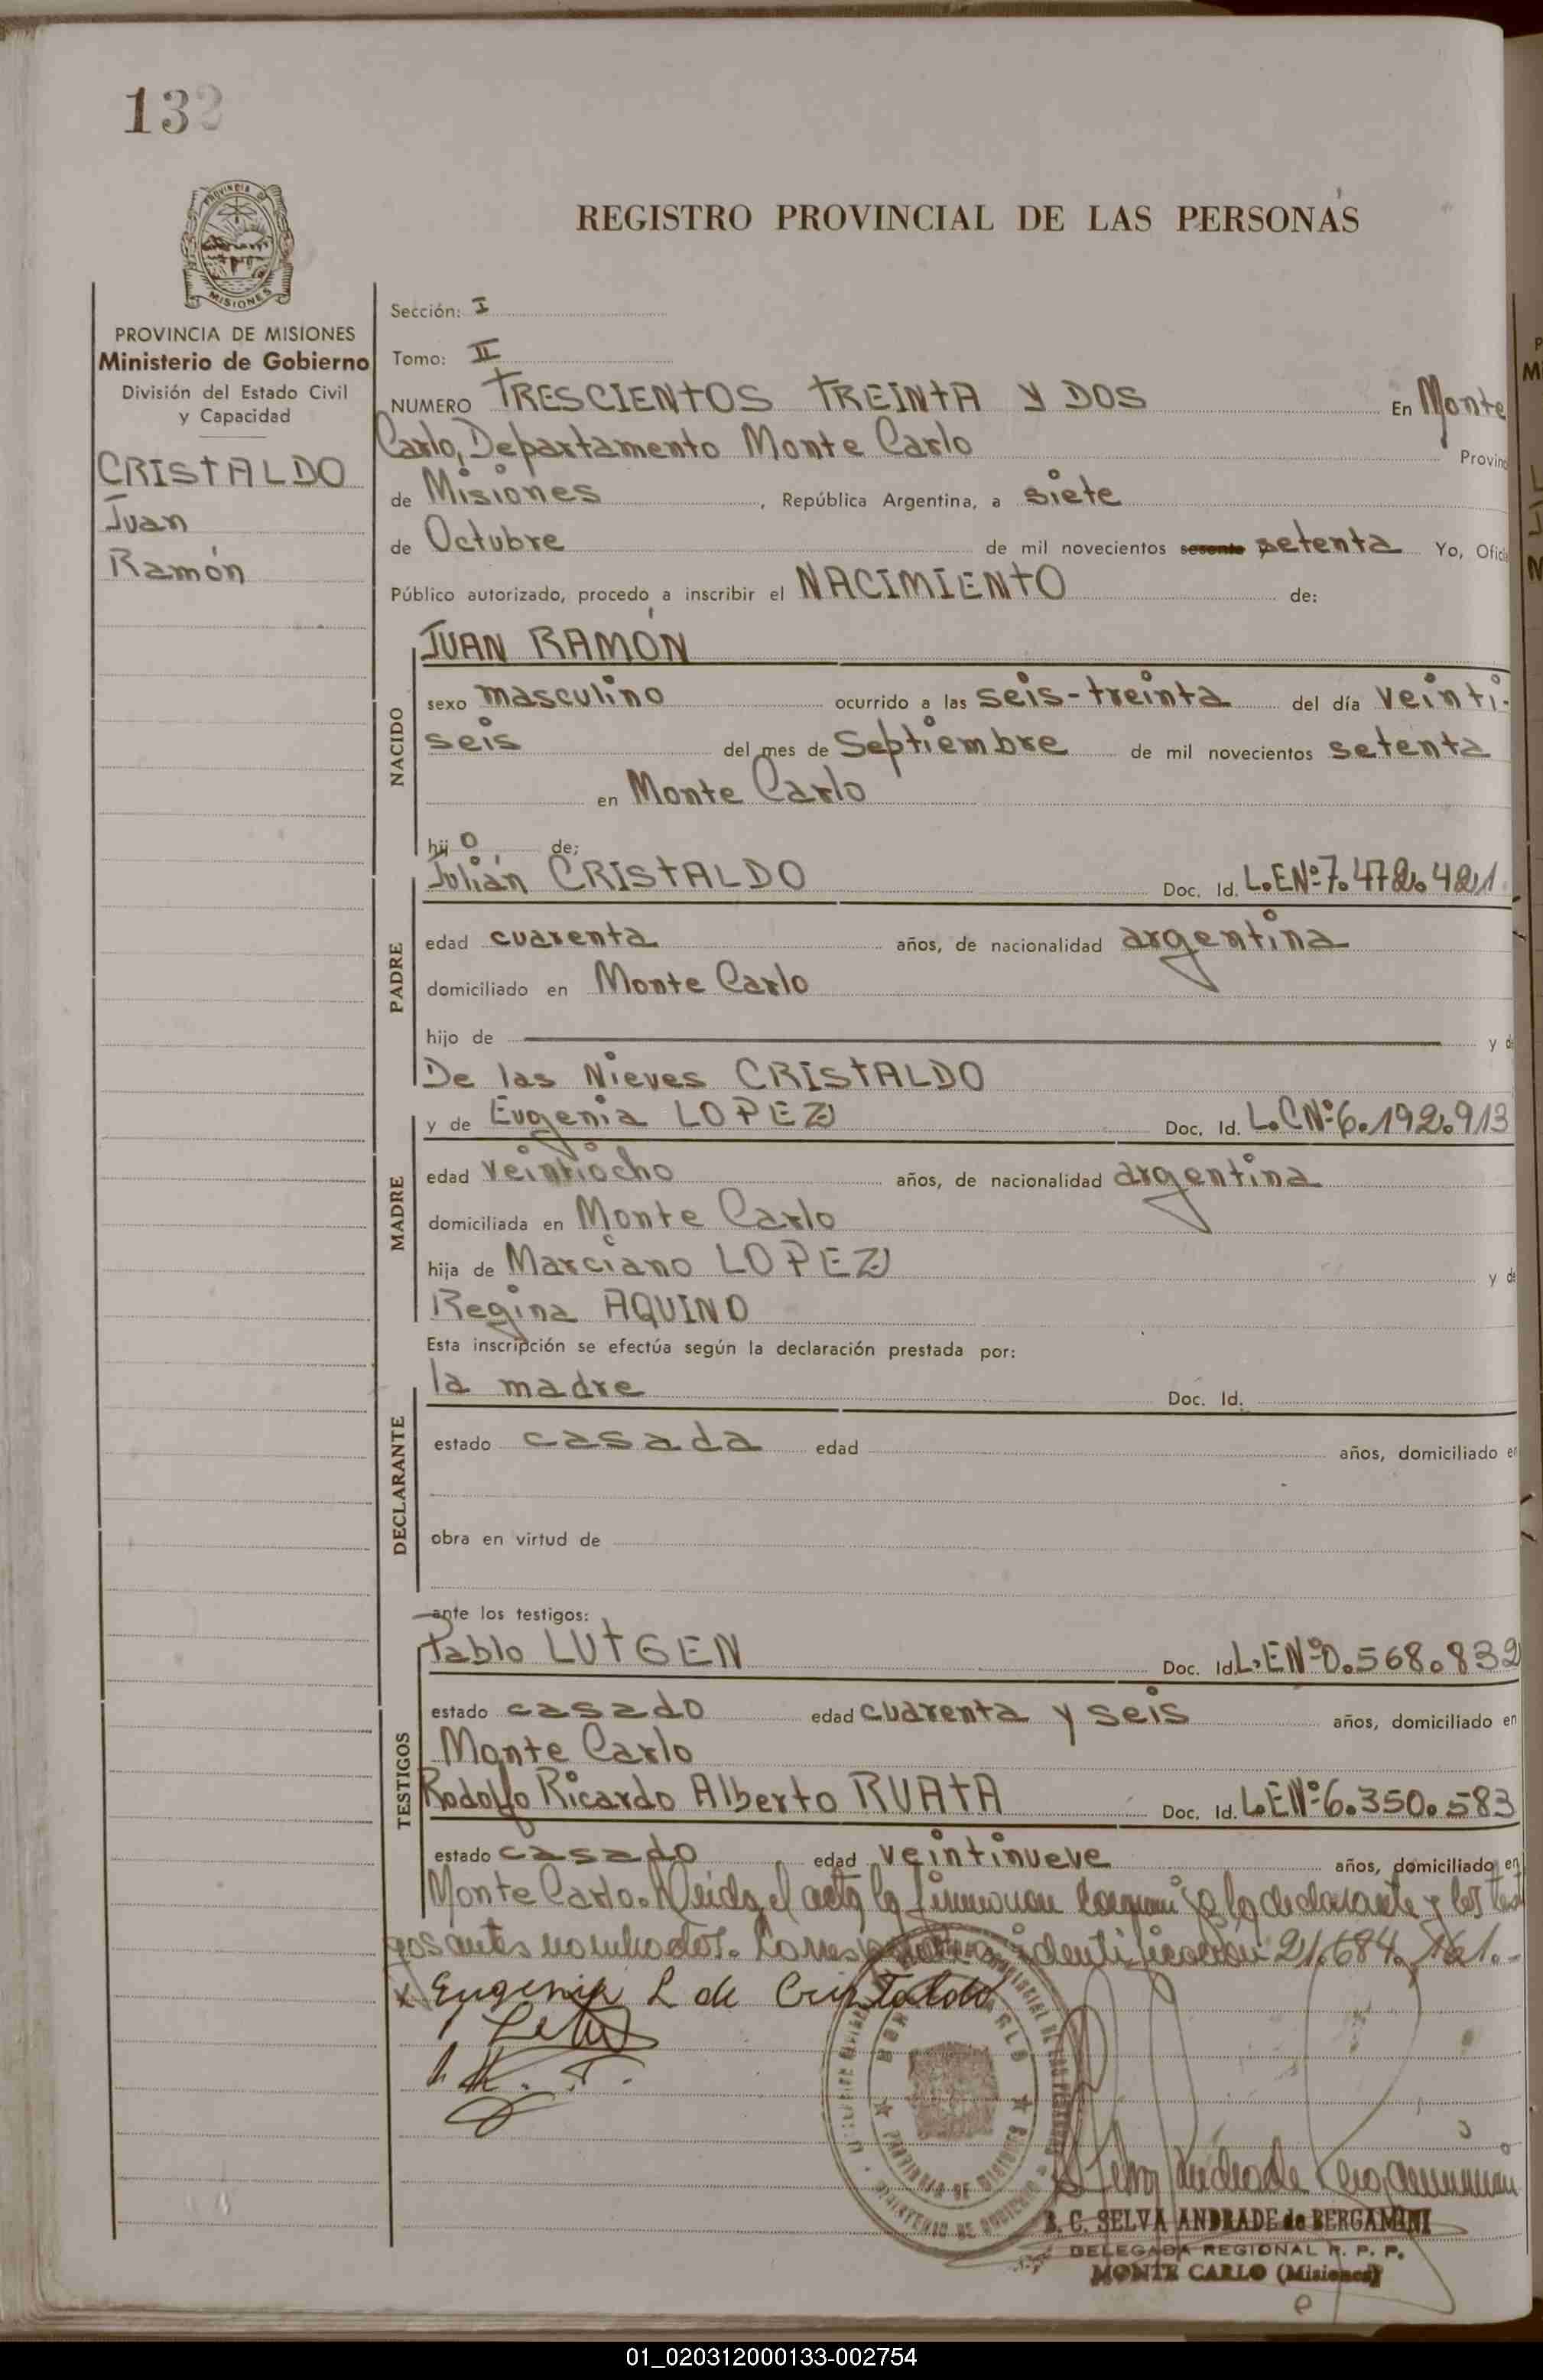 132
PROVINCIA DE
MISIONES
REGISTRO PROVINCIAL DE LAS PERSONAS
PROVINCIA DE MISIONES
Ministerio de Gobierno
División del Estado Civil
y Capacidad
CRISTALDO
Juan
Ramón
Sección: I
Tomo: II
NUMERO TRESCIENTOS TREINTA Y DOS En Monte
Carlo, Departamento Monte Carlo Provinc
de Misiones, República Argentina, a siete
de Octubre de mil novecientos sesenta setenta Yo, Oficia
Público autorizado, procedo a inscribir el NACIMIENTO de:
NACIDO
JUAN RAMÓN
sexo masculino ocurrido a las seis-treinta del día veinti-
seis del mes de Septiembre de mil novecientos setenta
en Monte Carlo
hijo de:
PADRE
Julián CRISTALDO Doc. Id. L.ENº7.472.421
edad cuarenta años, de nacionalidad argentina
domiciliado en Monte Carlo
hijo de y d
De las Nieves CRISTALDO
MADRE
y de Eugenia LOPEZ Doc. Id. L.CNº6.192.913
edad veintiocho años, de nacionalidad argentina
domiciliada en Monte Carlo
hija de Marciano LOPEZ y de
Regina AQUINO
Esta inscripción se efectúa según la declaración prestada por:
DECLARANTE
la madre Doc. Id.
estado casada edad años, domiciliado en
obra en virtud de
ante los testigos:
TESTIGOS
Pablo LUTGEN Doc. Id L.ENº0.568.832
estado casado edad cuarenta y seis años, domiciliado en
Monte Carlo
Rodolfo Ricardo Alberto RUATA Doc. Id. L.ENº6.350.583
estado casado edad veintinueve años, domiciliado en
Monte Carlo. Leida el acta la firman conmigo la declarante y los testi
gos antes nombrados. identificación 21.684.161.-
Eugenia L de Cristaldo
PROVINCIA DE MISIONES
MINISTERIO DE GOBIERNO
B. C. SELVA ANDRADE de BERGAMINI
DELEGADA REGIONAL R. P. P.
MONTE CARLO (Misiones)
01_020312000133-002754